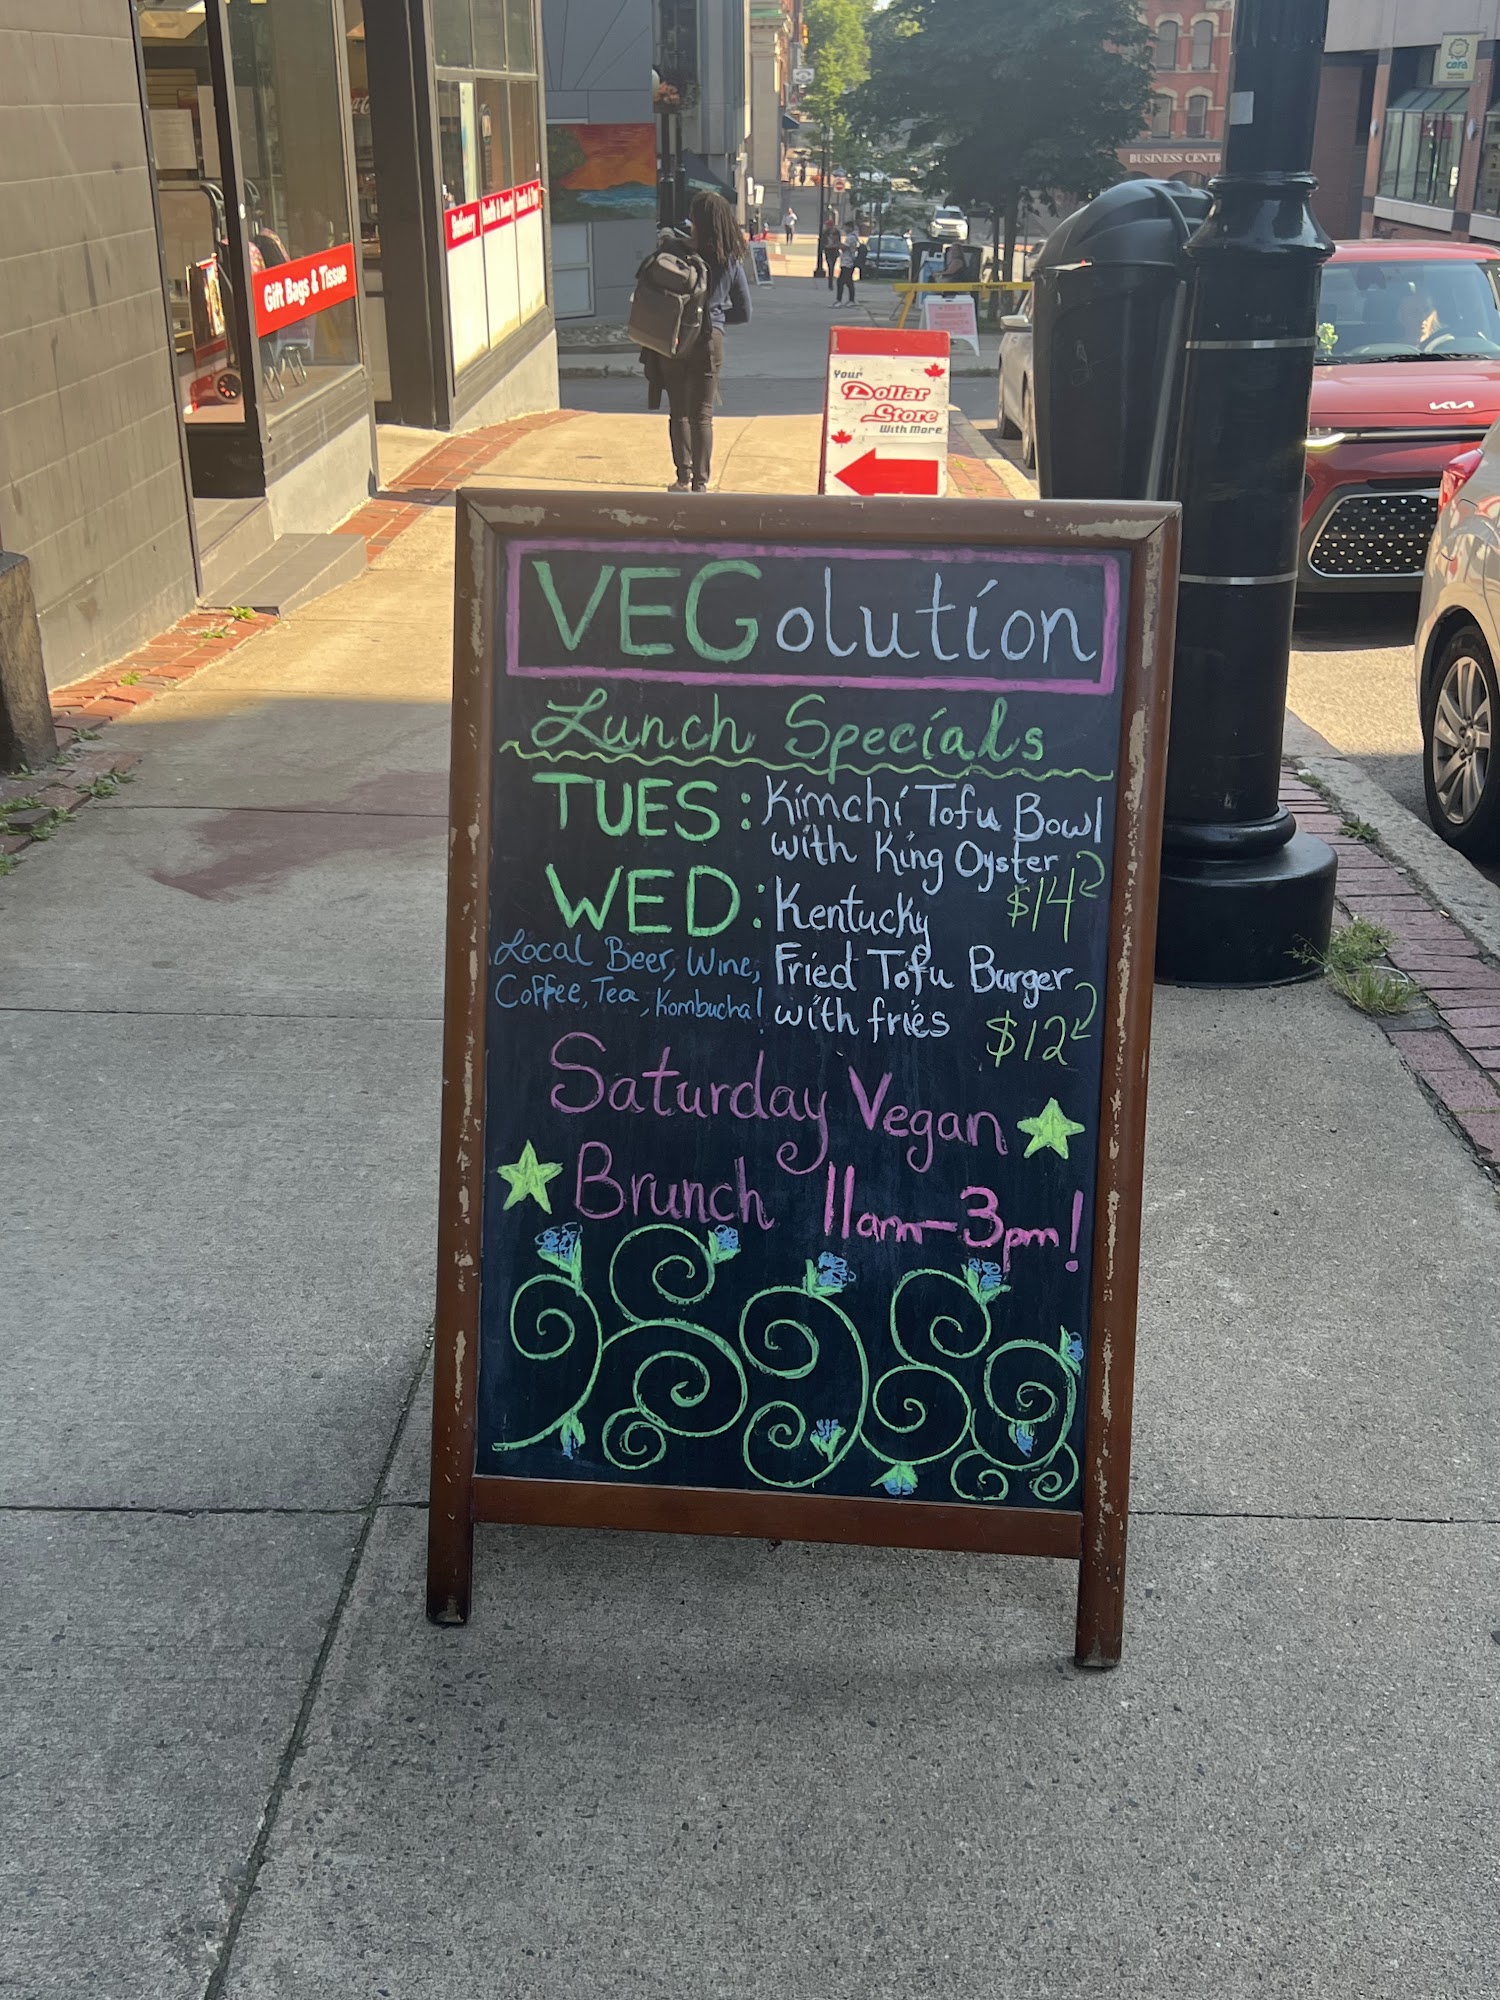 Gift Bags & Tissue
Stationery
Health & Beauty
BUSINESS CENT
Your
Dollar
Store
With More
KIA
VEGolution
Lunch Specials
TUES: Kimchi Tofu Bowl
with King Oyster
$14
WED: Kentucky
Fried Tofu Burger
with fries
$12
Local Beer, Wine,
Coffee, Tea, Kombucha!
Saturday Vegan
Brunch 11am-3pm!